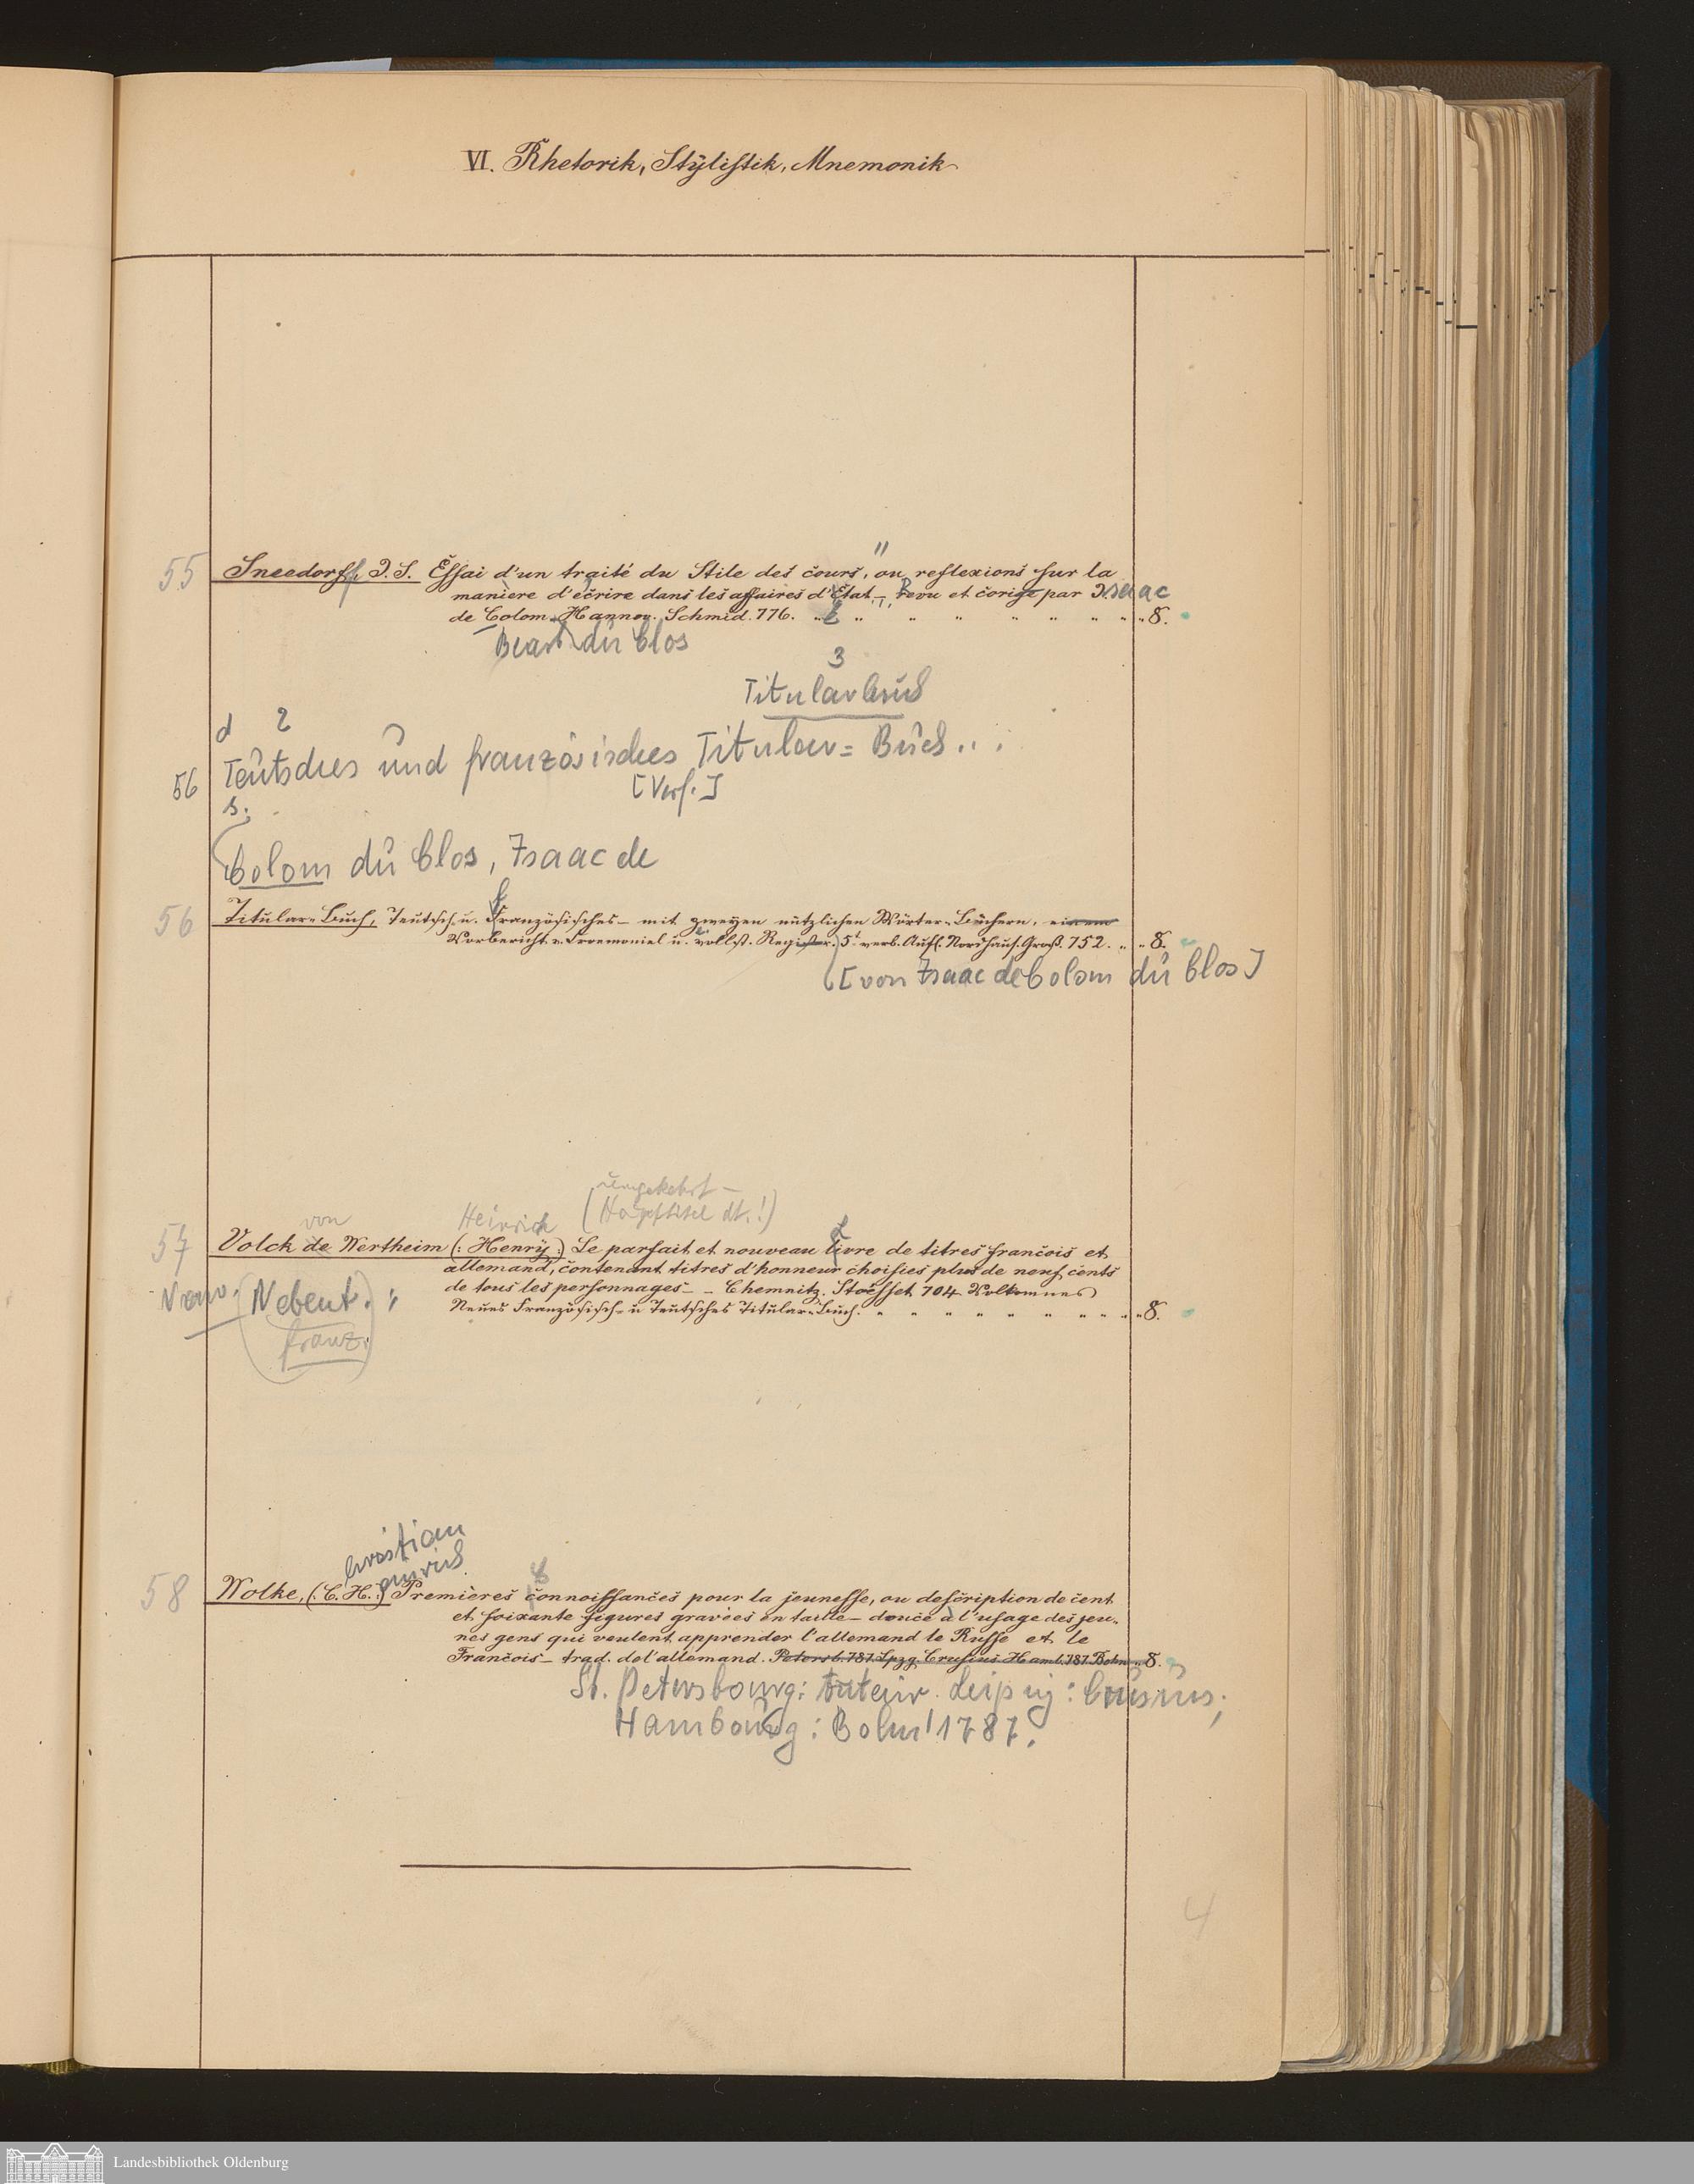 VI. Rhetorik, Stÿlistik, Mnemonik
"
55 Sneedorff, J. S. Essai d'un traité du Stile des cours, ou reflexions sur la
maniere d'écrire dans les affaires d'Etat _ Revu et corigé par Isaac
de Colom. Hannov. Schmid. 776. " " " " " " " " 8.
du Clos
3
Titularbuch
d 2
56 Teutsches und französisches Titular= Buch...
[Verf.]
s.
Colom du Clos, Isaac de
56 Titular-Buch, Teutsch. u. Französisches _ mit zweyen nützlichen Wörter-Büchern, einem
Vorbericht v. Ceremoniel u. vollst. Register. 5t. verb. Aufl. Nordhaus. Groß. 752. " " 8.
[von Isaac de Colom du Clos]
umgekehrt –
von Heinrich (Hauptitel dt.!)
57 Volck de Wertheim (: Henrÿ :) Le parfait et nouveau Livre de titres francois et
allemand, contenant titres d'honneur choisies plus de neuf cents
de tous les personnages _ _ Chemnitz. Stoësset 704. Volkomnes
Neues Französisch- u Teutsches Titular-Buch. " " " " " " " " 8.
(Nebent.
franz.)
Christian
Henrich
58 Wolke, (: C. H. :) Premières connoissances pour la jeunesse, ou description de cent
et soixante figures gravées en taille _ douce à l'usage des jeu-
nes gens qui veulent apprender l'allemand le Russe et le
François _ trad. de l'allemand. Petersb. 787. Lpzg. Crusius. Hamb. 787. Bohn " 8.
St. Petersbourg: Leipzig: Crusius;
Hambourg: Bohn 1787.
4
Landesbibliothek Oldenburg